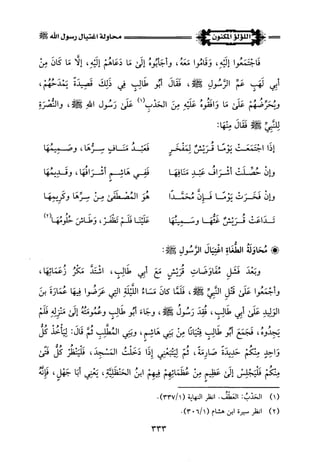 اللؤلؤ المكنون
محاولة اغتيال رسول الله ﷺ
فَاجْتَمَعُوا إِلَيْهِ، وَقَامُوا مَعَهُ، وَأَجَابُوهُ إِلَى مَا دَعَاهُمْ إِلَيْهِ، إِلَّا مَا كَانَ مِنْ
أَبِي لَهَبٍ عَمِّ الرَّسُولِ ﷺ، فَقَالَ أَبُو طَالِبٍ فِي ذَلِكَ قَصِيدَةً يَمْدَحُهُمْ،
وَيُحَرِّضُهُمْ عَلَى مَا وَافَقُوهُ عَلَيْهِ مِنَ الحَدَبِ(١) عَلَى رَسُولِ اللهِ ﷺ، وَالنُّصْرَةِ
لِلنَّبِيِّ ﷺ فَقَالَ مِنْهَا:
إِذَا اجْتَمَعَتْ يَوْمًا قُرَيْشٌ لِمَفْخَرٍ فَعَبْدُ مَنَافٍ سِرُّهَا، وَصَمِيمُهَا
وَإِنْ حُصِّلَتْ أَشْرَافُ عَبْدِ مَنَافِهَا فَفِي هَاشِمٍ أَشْرَافُهَا، وَقَدِيمُهَا
وَإِنْ فَخَرَتْ يَوْمًا فَإِنَّ مُحَمَّدًا هُوَ المُصْطَفَى مِنْ سِرِّهَا وَكَرِيمُهَا
تَدَاعَتْ قُرَيْشٌ غَثُّهَا وَسَمِينُهَا عَلَيْنَا فَلَمْ تَظْفَرْ، وَطَاشَتْ حُلُومُهَا(٢)
مُحَاوَلَةُ الطُّغَاةِ اغْتِيَالَ الرَّسُولِ ﷺ:
وَبَعْدَ فَشَلِ مُفَاوَضَاتِ قُرَيْشٍ مَعَ أَبِي طَالِبٍ، اشْتَدَّ مَكْرُ زُعَمَائِهَا،
وَأَجْمَعُوا عَلَى قَتْلِ النَّبِيِّ ﷺ، فَلَمَّا كَانَ مَسَاءُ اللَّيْلَةِ الَّتِي عَرَضُوا فِيهَا عُمَارَةَ بنَ
الوَلِيدِ عَلَى أَبِي طَالِبٍ، فُقِدَ رَسُولُ ﷺ، وَجَاءَ أَبُو طَالِبٍ وَعُمُومَتُهُ إِلَى مَنْزِلِهِ فَلَمْ
يَجِدُوهُ، فَجَمَعَ أَبُو طَالِبٍ فِتْيَانًا مِنْ بَنِي هَاشِمٍ، وَبَنِي المُطَّلِبِ ثُمَّ قَالَ: لِيَأْخُذْ كُلُّ
وَاحِدٍ مِنْكُمْ حَدِيدَةً صَارِمَةً، ثُمَّ لِيَتْبَعْنِي إِذَا دَخَلْتُ المَسْجِدَ، فَلْيَنْظُرْ كُلُّ فَتًى
مِنْكُمْ فَلْيَجْلِسْ إِلَى عَظِيمٍ مِنْ عُظَمَائِهِمْ فِيهِمُ ابنُ الحَنْظَلِيَّةِ، يَعْنِي أَبَا جَهْلٍ، فَإِنَّهُ
(١) الحَدَبُ: العَطْفُ. انظر النهاية (٣٣٧/١).
(٢) انظر سيرة ابن هشام (٣٠٦/١).
٣٣٣